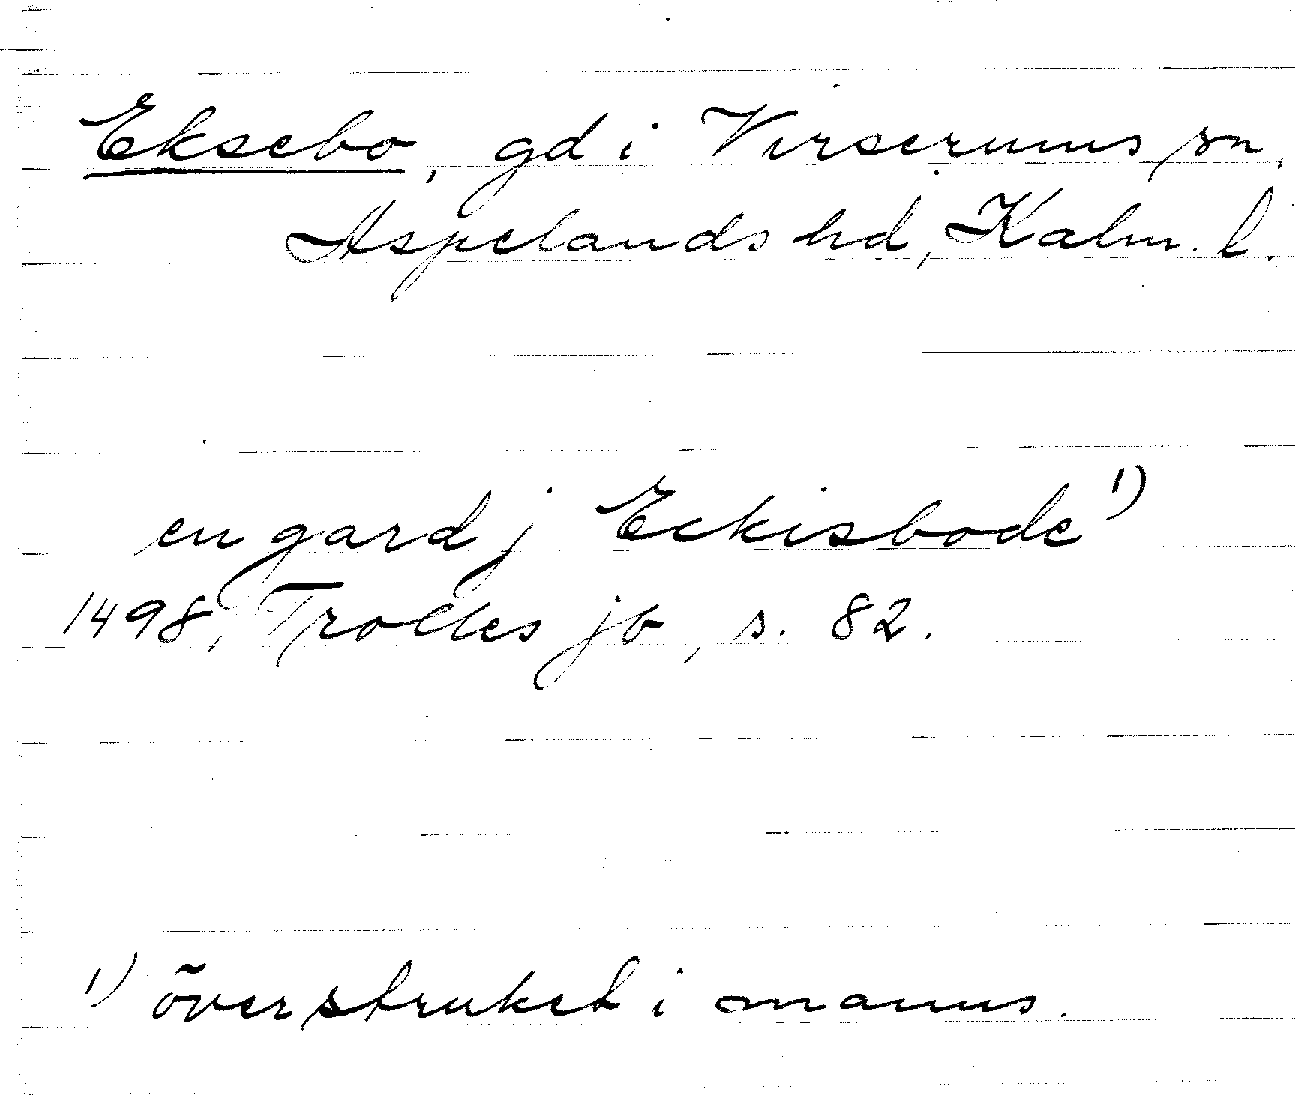 Eksebo, gd i Virserums sn,
Aspelands hd, Kalm. l.
en gard j Eckisbode 1)
1498, Trolles jb, s. 82.
1) överstruket i manus.